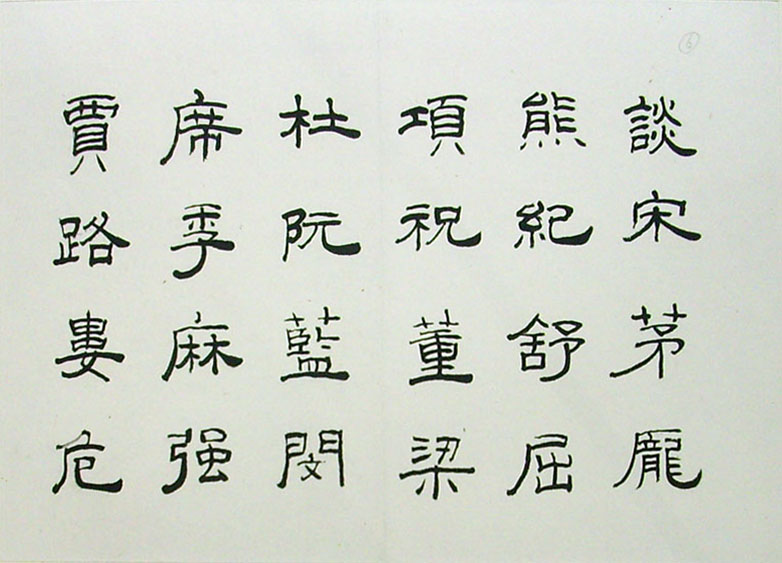 6
談宋茅龐
熊紀舒屈
項祝董梁
杜阮藍閔
席季麻强
賈路婁危